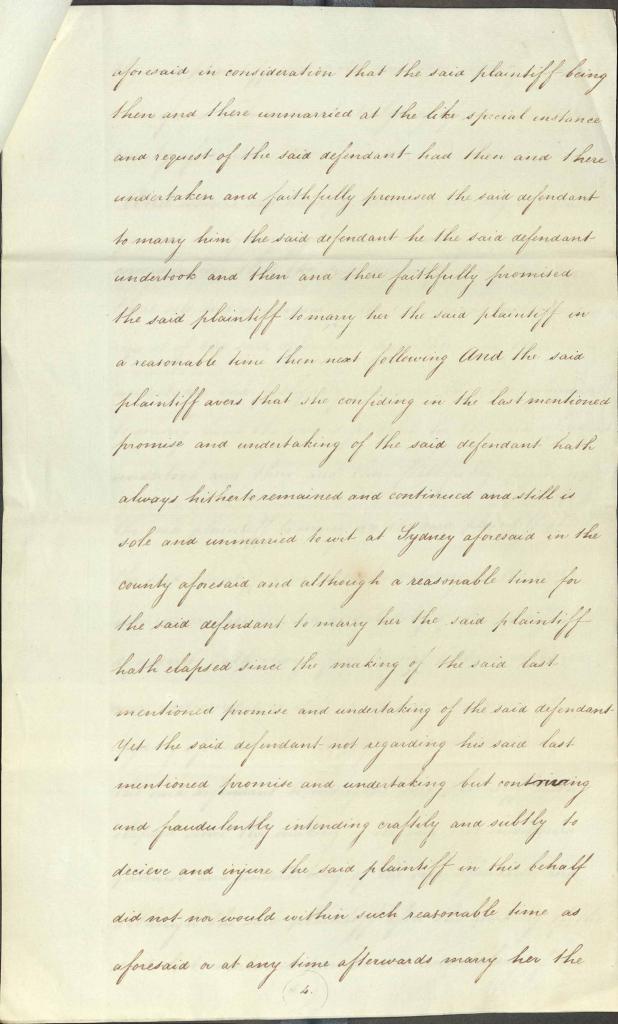 aforesaid in consideration that the said plaintiff being
then and there unmarried at the like special instance
and request of the said defendant had then and there
undertaken and faithfully promised the said defendant
to marry him the said defendant he the said defendant
undertook and then and there faithfully promised
the said plaintiff to marry her the said plaintiff in
a reasonable time then next following And the said
plaintiff avers that she confiding in the last mentioned
promise and undertaking of the said defendant hath
always hitherto remained and continued and still is
sole and unmarried to wit at Sydney aforesaid in the
county aforesaid and although a reasonable time for
the said defendant to marry her the said plaintiff
hath elapsed since the making of the said last
mentioned promise and undertaking of the said defendant
Yet the said defendant not regarding his said last
mentioned promise and undertaking but contriving
and fraudulently intending craftily and subtly to
decieve and injure the said plaintiff in this behalf
did not nor would within such reasonable time as
aforesaid or at any time afterwards marry her the
4.